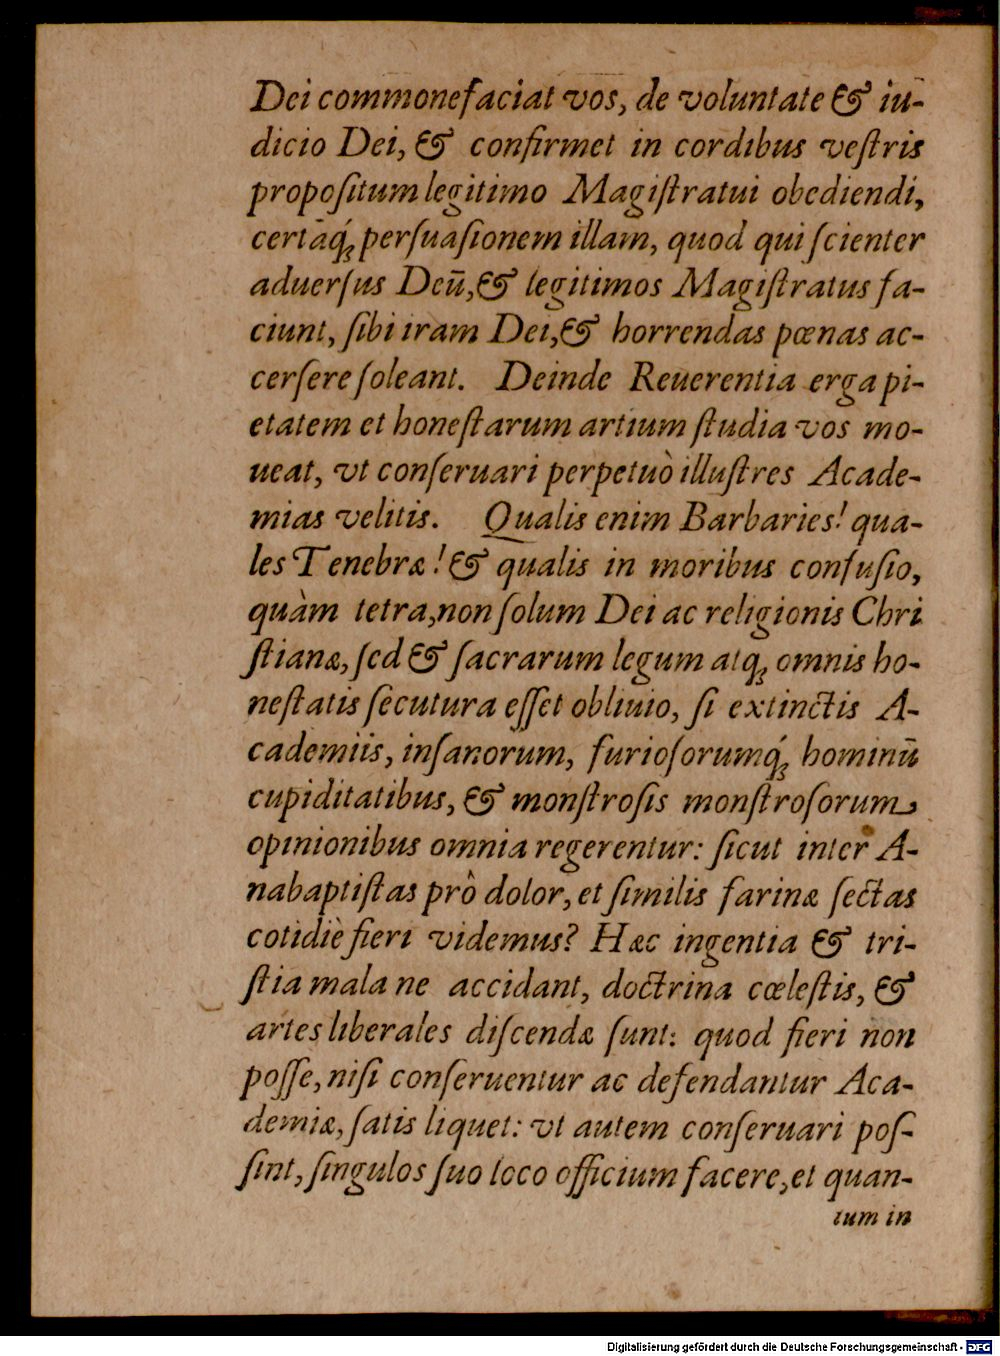 Dei commonefaciat vos, de voluntate & iu-
dicio Dei, & confirmet in cordibus veſtris
propoſitum legitimo Magiſtratui obediendi,
certāq́ꝫ perſuaſionem illam, quod qui ſcienter
aduerſus Deū, & legitimos Magiſtratus fa-
ciunt, ſibi iram Dei, & horrendas pœnas ac-
cerſere ſoleant. Deinde Reuerentia erga pi-
etatem et honeſtarum artium ſtudia vos mo-
ueat, vt conſeruari perpetuò illuſtres Acade-
mias velitis. Qualis enim Barbaries! qua-
les Tenebræ! & qualis in moribus confuſio,
quàm tetra, non ſolum Dei ac religionis Chri
ſtianæ, ſed & ſacrarum legum atqꝫ omnis ho-
neſtatis ſecutura eſſet obliuio, ſi extinctis A-
cademiis, inſanorum, furioſorumq́ꝫ hominū
cupiditatibus, & monſtroſis monſtroſorum
opinionibus omnia regerentur: ſicut inter A-
nabaptiſtas prô dolor, et ſimilis farinæ ſectas
cotidiè fieri videmus? Hæc ingentia & tri-
ſtia mala ne accidant, doctrina cœleſtis, &
artes liberales diſcendæ ſunt: quod fieri non
poſſe, niſi conſeruentur ac defendantur Aca-
demiæ, ſatis liquet: vt autem conſeruari poſ-
ſint, ſingulos ſuo loco officium facere, et quan-
tum in
Digitalisierung gefördert durch die Deutsche Forschungsgemeinschaft - DFG